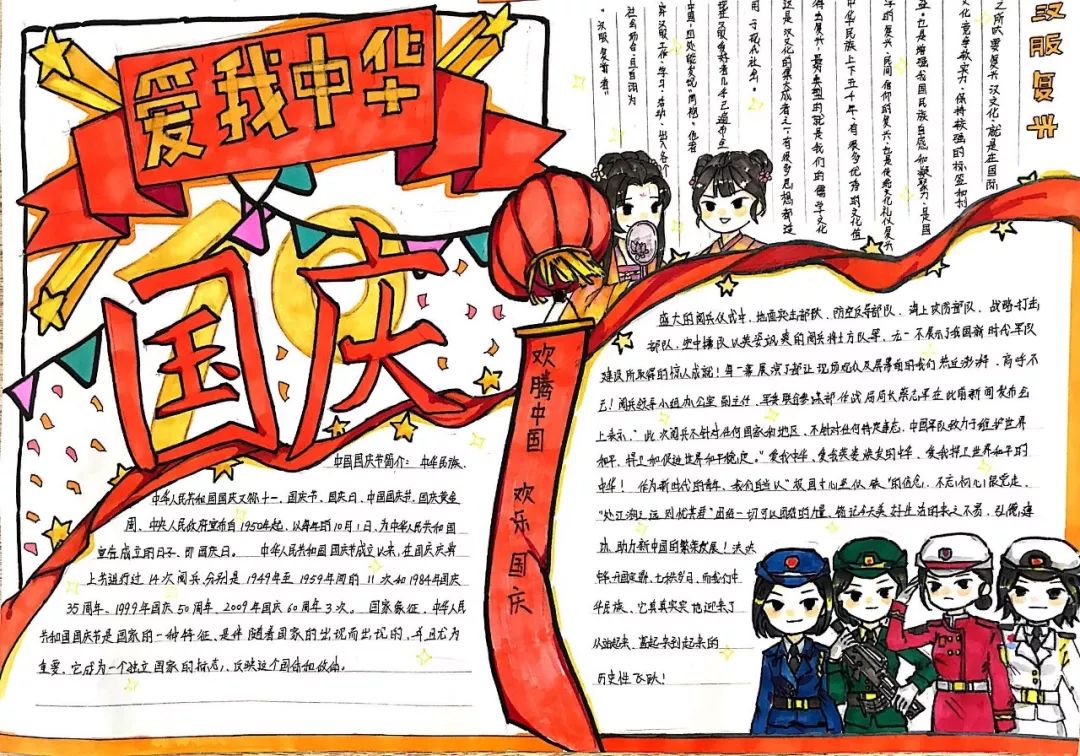 爱我中华
国庆
欢腾中国 欢乐国庆
中国国庆节简介: 中华民族、
中华人民共和国国庆又称十一、国庆节、国庆日、中国国庆节、国庆黄金
周。中央人民政府宣布自1950年起,以每年的10月1日,为中华人民共和国
宣告成立的日子,即国庆日。 中华人民共和国国庆节成立以来,在国庆庆典
上共进行过14次阅兵,分别是1949年至1959年间的11次和1984年国庆
35周年、1999年国庆50周年、2009年国庆60周年3次。 国家象征,中华人民
共和国国庆节是国家的一种特征,是伴随着国家的出现而出现的,并且尤为
重要,它成为一个独立国家的标志,反映这个国体和政体。
汉服复兴
之所以要复兴汉文化,就是在国际
文化竞争软实力,保持较强的标签和
益,也是增强我国民族自感和凝聚力,是国
学的复兴、民间信仰的复兴,也是传统文化礼仪复兴
中华民族上下五千年,有很多优秀的文化值
得去复兴,最典型的就是我们的儒学文化
这是汉文化的集大成者之一,有很多思想都
用于现代社会。
汉服爱好者几乎已遍布
中国,四处能发现"同袍"
穿汉服工作、学习、活动、出入各个
社会场合,且自诩为
"汉服复兴者"
盛大的阅兵仪式中,地面突击部队、防空反导部队、海上攻防部队、战略打击
部队,空中梯队以英姿飒爽的阅兵将士方队等,无一不展示了我国新时代军队
建设所取得的惊人成就!每一幕展演了都让现场观众及屏幕前的我们热泪澎湃、高呼不
已!阅兵领导小组办公室副主任、军委联合参谋部作战局局长蔡志军在此前新闻发布会
上表示,"此次阅兵不针对任何国家和地区、不针对任何特定事态,中国军队致力于维护世界
和平,捍卫和促进世界和平稳定。"爱我中华、爱我英姿焕发的中华、爱我捍卫世界和平的
中华! 作为新时代的青年,我们自当以"报国之心至似砥"的信念,不忘初心跟党走,
"处江湖之远则忧其君"团结一切可以团结的力量,铭记今天美好生活的来之不易,弘扬,建
设,助力新中国的繁荣发展!
年,开国定鼎,七秩岁月,而我们中
华民族、它真真实实地迎来了
从站起来、富起来到起来的
历史性飞跃!